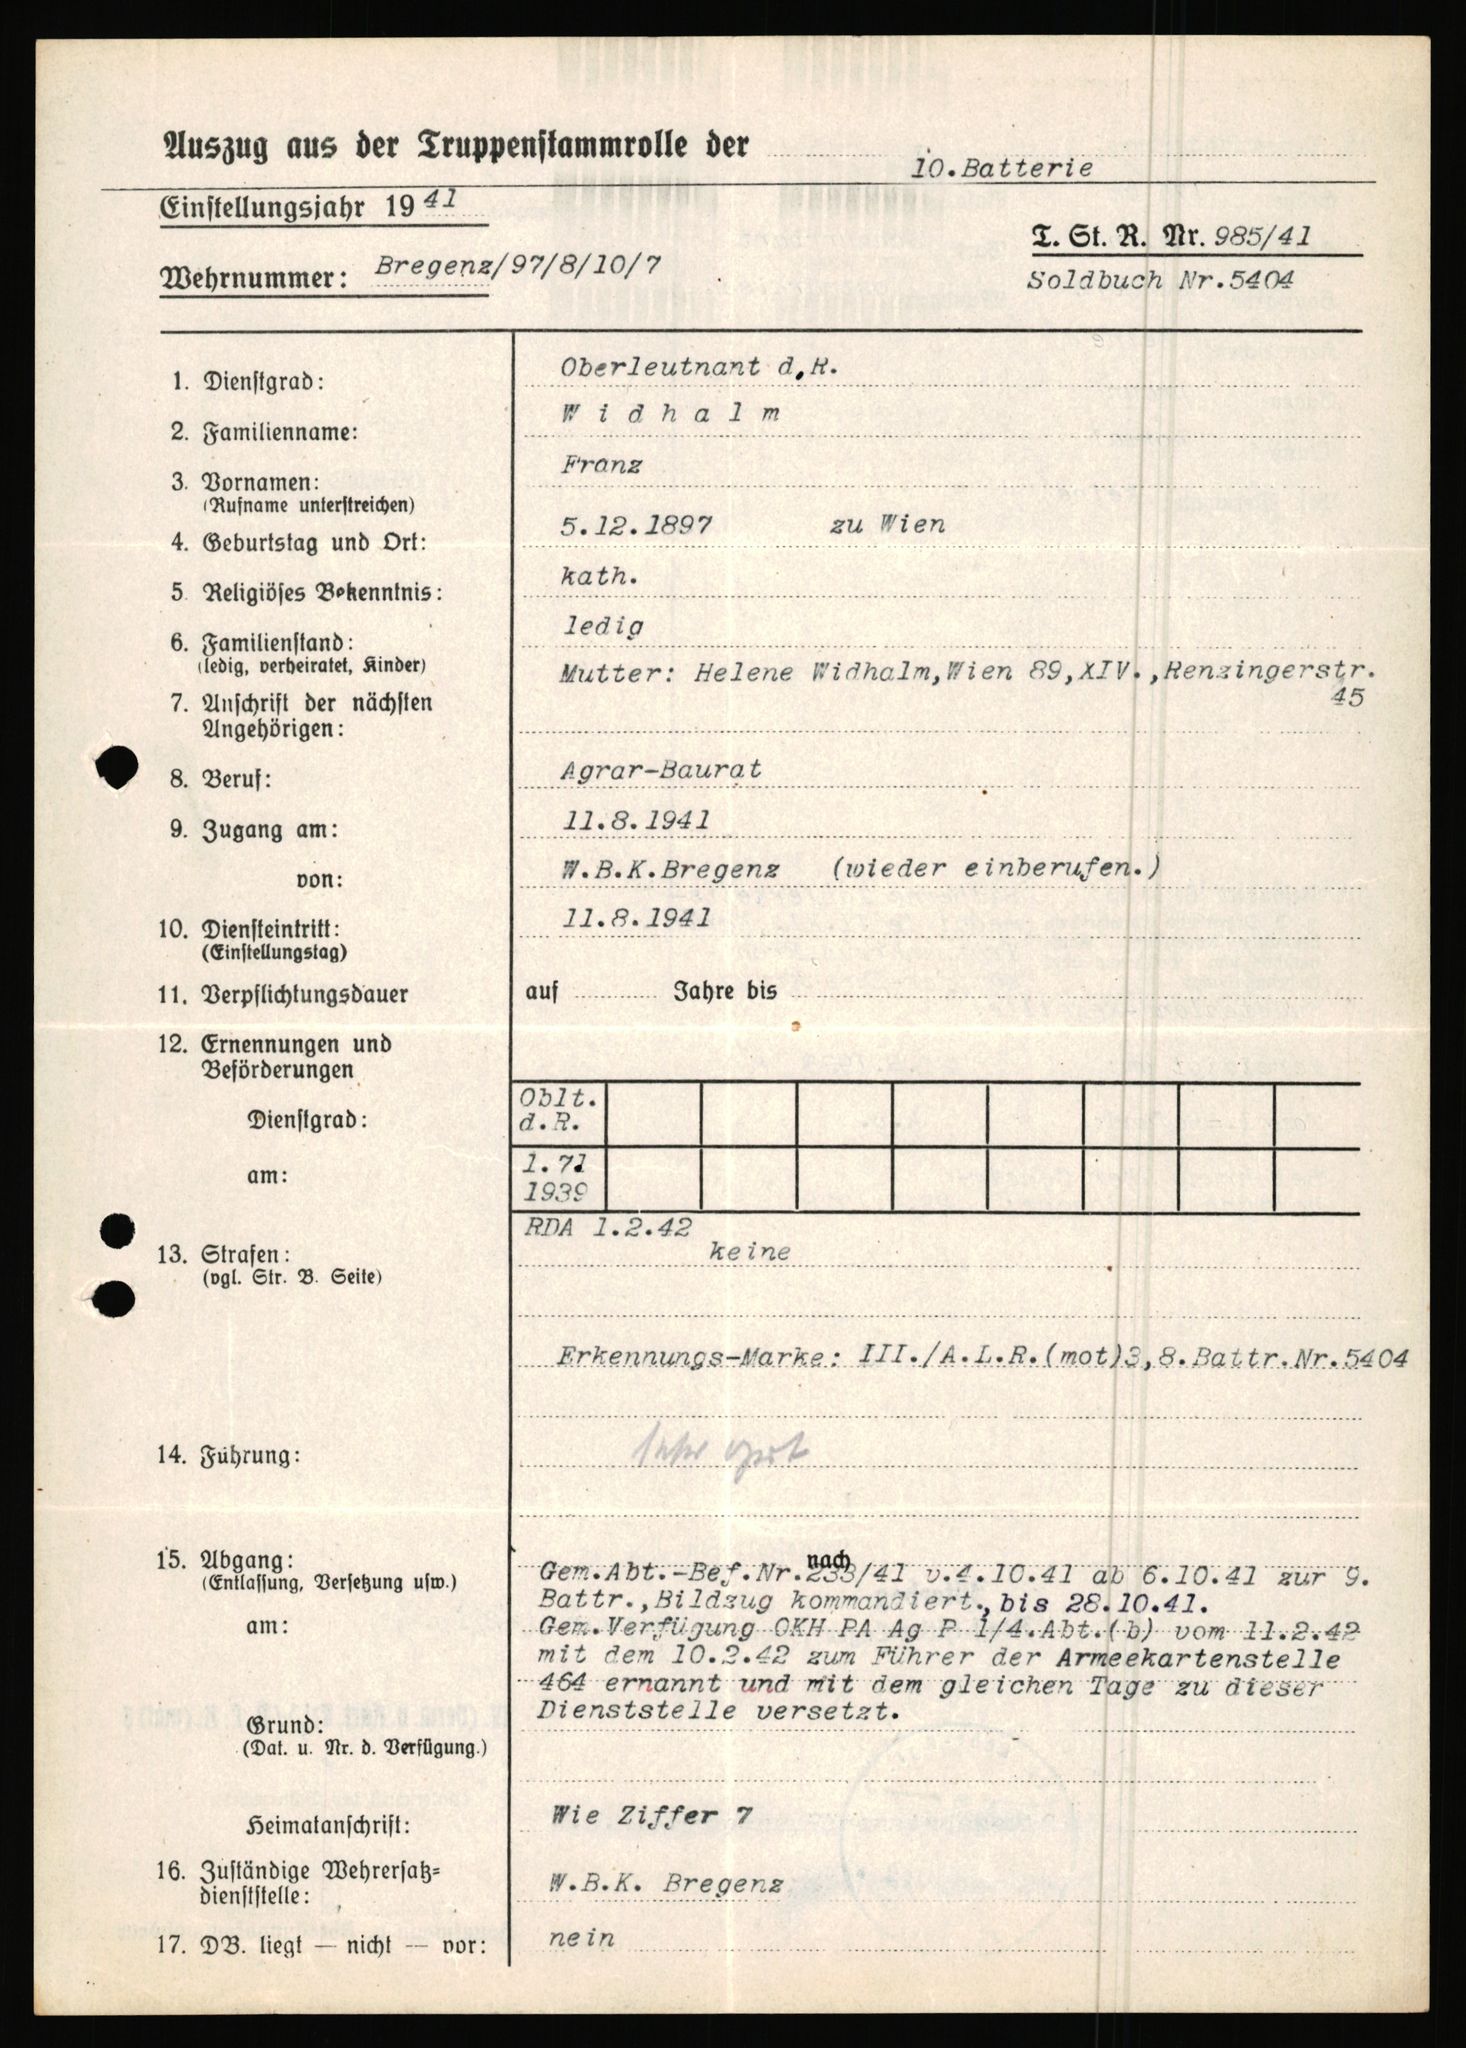 Auszug aus der Truppenstammrolle der
10.Batterie
Einstellungsjahr 19 41
T. St. R. Nr. 985/41
Wehrnummer: Bregenz/97/8/10/7
Soldbuch Nr.5404
1. Dienstgrad: Oberleutnant d.R.
2. Familienname: W i d h a l m
3. Vornamen: Franz
(Rufname unterstreichen)
4. Geburtstag und Ort: 5.12.1897 zu Wien
5. Religiöses Bekenntnis: kath.
6. Familienstand: ledig
(ledig, verheiratet, Kinder)
7. Anschrift der nächsten Mutter: Helene Widhalm,Wien 89,XIV.,Renzingerstr.
45
Angehörigen:
8. Beruf: Agrar-Baurat
9. Zugang am: 11.8.1941
von: W.B.K.Bregenz (wieder einberufen.)
10. Diensteintritt: 11.8.1941
(Einstellungstag)
11. Verpflichtungsdauer auf Jahre bis
12. Ernennungen und
Beförderungen
Dienstgrad: Oblt.
d.R.
am: 1.71
1939
RDA 1.2.42
13. Strafen: keine
(vgl. Str. B. Seite)
Erkennungs-Marke: III./A.L.R.(mot)3,8.Battr.Nr.5404
14. Führung: sehr gut
15. Abgang: nach
(Entlassung, Versetzung usw.) Gem.Abt.-Bef.Nr.233/41 v.4.10.41 ab 6.10.41 zur 9.
Battr.,Bildzug kommandiert.,bis 28.10.41.
am: Gem.Verfügung OKH PA Ag P 1/4.Abt.(b) vom 11.2.42
mit dem 10.2.42 zum Führer der Armeekartenstelle
464 ernannt und mit dem gleichen Tage zu dieser
Dienststelle versetzt.
Grund:
(Dat. u. Nr. d. Verfügung.)
Heimatanschrift: Wie Ziffer 7
16. Zuständige Wehrersatz=
dienststelle: W.B.K. Bregenz
17. DB. liegt — nicht — vor: nein